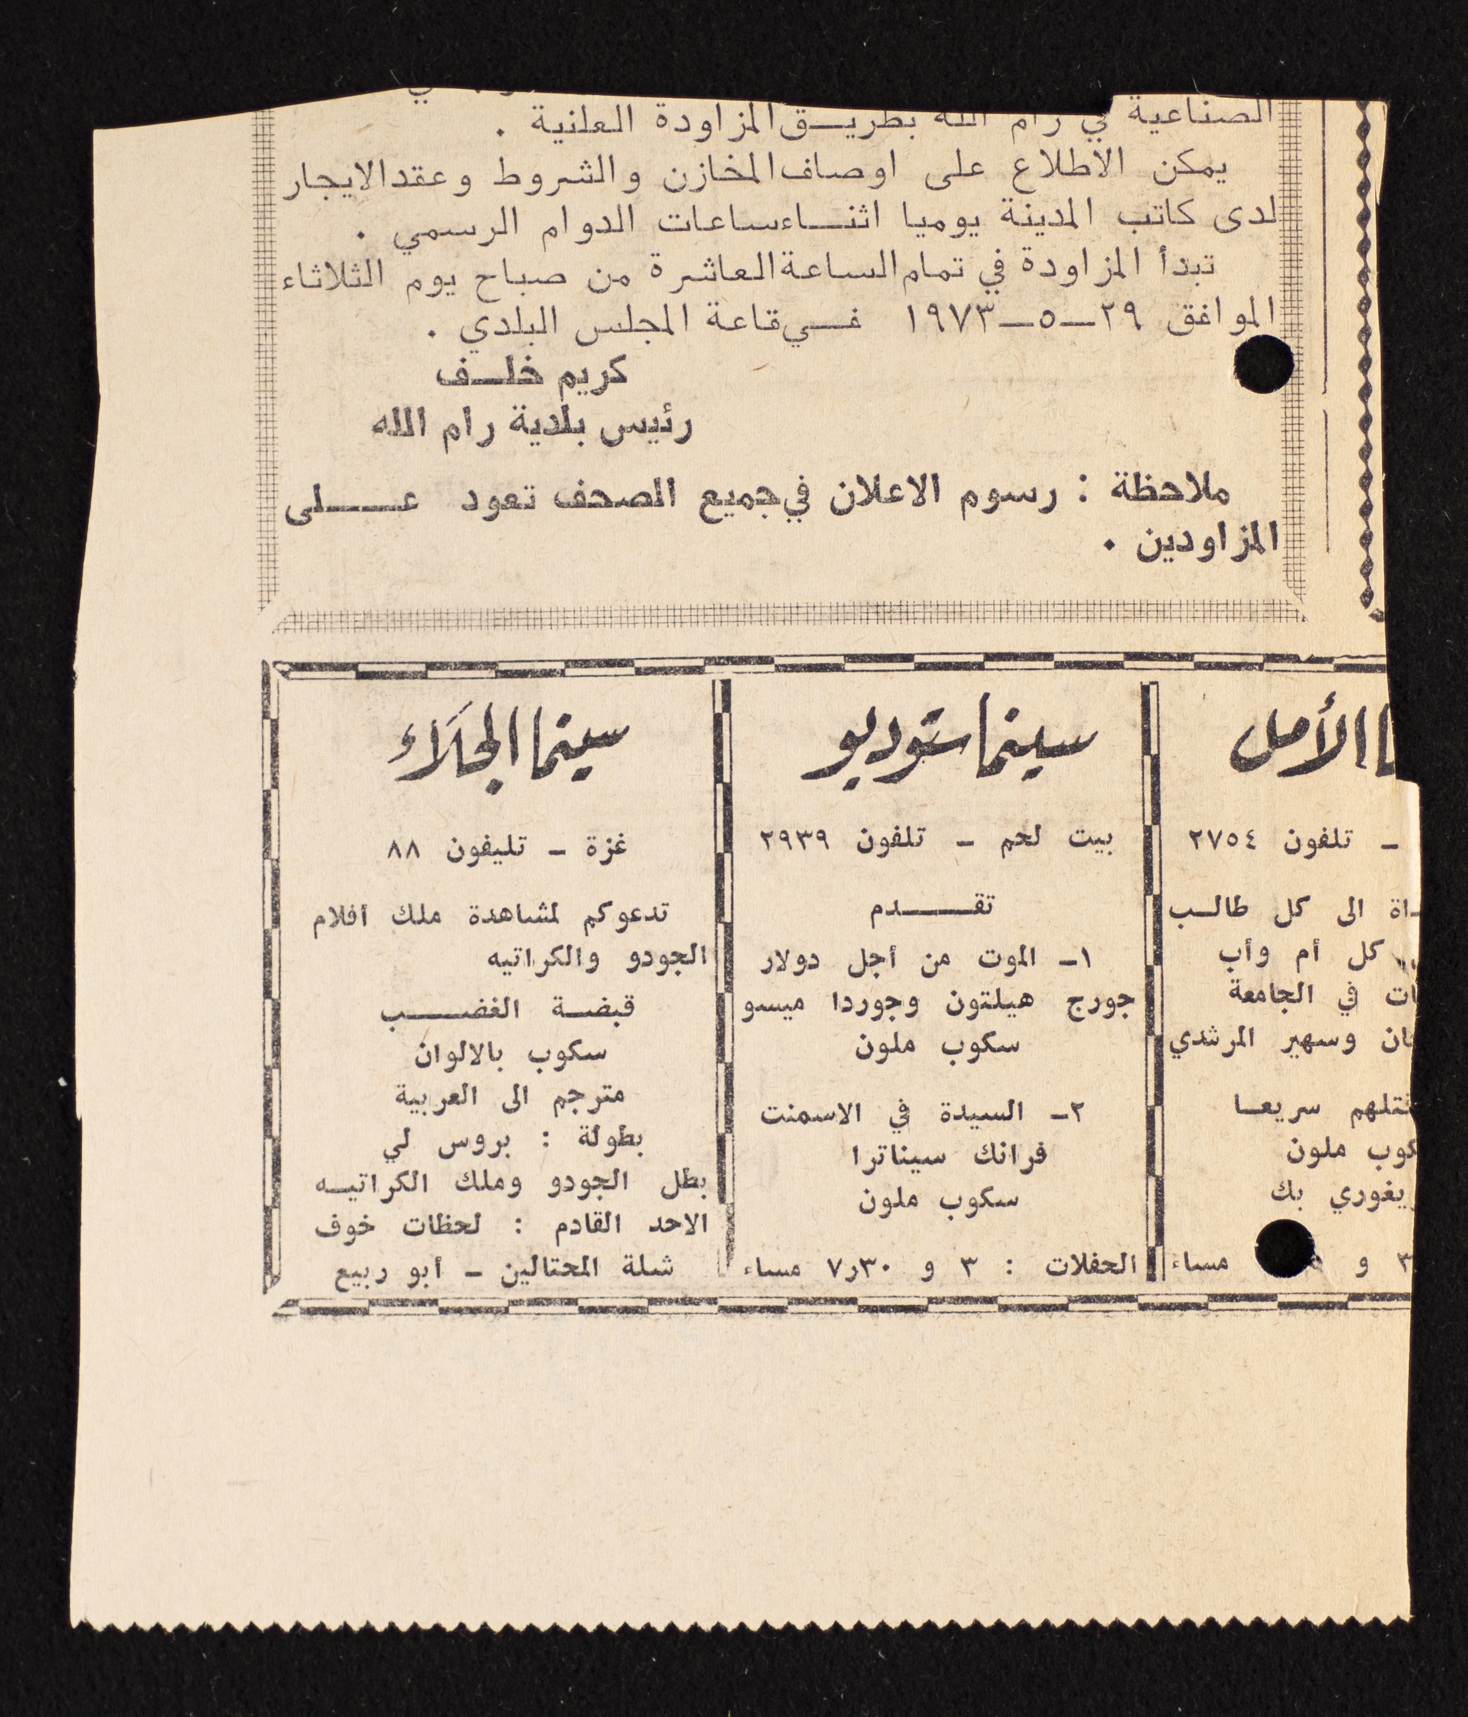 الصناعية في رام الله بطريــق المزاودة العلنية .
يمكن الاطلاع على اوصاف المخازن والشروط وعقد الايجار
لدى كاتب المدينة يوميا اثنـــاء ساعات الدوام الرسمي .
تبدأ المزاودة في تمام الساعة العاشرة من صباح يوم الثلاثاء
الموافق ٢٩ــ٥ــ١٩٧٣ فــي قاعة المجلس البلدي .
كريم خلــف
رئيس بلدية رام الله
ملاحظة : رسوم الاعلان في جميع الصحف تعود عـــــلى
المزاودين .
الأمل
ـ تلفون ٢٧٥٤
الى كل طالــب
كل أم وأب
في الجامعة
وسهير المرشدي
سريعــا
ملون
بك
٣ و مساء
سينما ستوديو
بيت لحم ـ تلفون ٢٩٣٩
تقــــــدم
١ـ الموت من أجل دولار
جورج هيلتون وجوردا ميسو
سكوب ملون
٢ـ السيدة في الاسمنت
فرانك سيناترا
سكوب ملون
الحفلات : ٣ و ٧ر٣٠ مساء
سينما الجلاء
غزة ـ تليفون ٨٨
تدعوكم لمشاهدة ملك أفلام
الجودو والكراتيه
قبضــة الغضـــــب
سكوب بالالوان
مترجم الى العربية
بطولة : بروس لي
بطل الجودو وملك الكراتيــه
الاحد القادم : لحظات خوف
شلة المحتالين ـ أبو ربيع